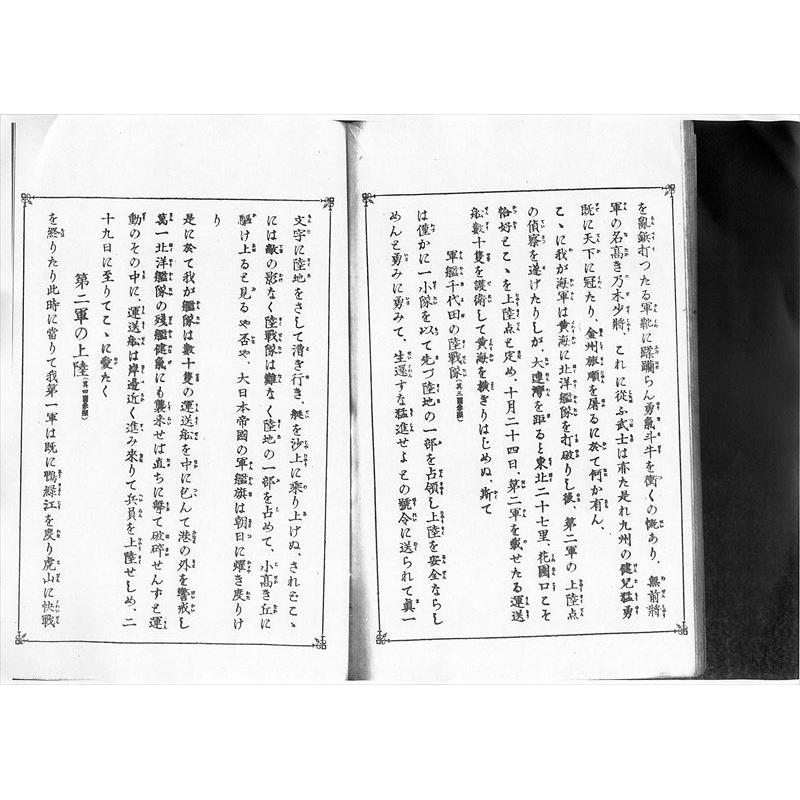 を亂鈑打つたる軍靴に蹂躙らん勇氣斗牛を衝くの慨あり、無前將
軍の名高き乃木少將、これに從ふ武士は亦た是れ九州の健兒猛勇
既に天下に冠たり、金州旅順を屠るに於て何か有ん、
こゝに我が海軍は黄海に北洋艦隊を打破りし後、第二軍の上陸点
の偵察を遂げたりしが、大連灣を距ると東北二十七里、花園口こそ
恰好とこゝを上陸点と定め、十月二十四日、第二軍を載せたる運送
舩數十隻を護衛して黄海を横ぎりはじめぬ、斯て
軍艦千代田の陸戰隊（其三圖參照）
は僅かに一小隊を以て先づ陸地の一部を占領し上陸を安全ならし
めんと勇みに勇みて、生還すな猛進せよとの號令に送られて眞一
文字に陸地をさして漕ぎ行き、艇を沙上に乘り上げぬ、されどこゝ
には敵の影なく陸戰隊は難なく陸地の一部を占めて、小高き丘に
驅け上ると見るや否や、大日本帝國の軍艦旗は朝日に耀き渡りけ
り
是に於て我が艦隊は數十隻の運送舩を中に包んて港の外を警戒し
萬一北洋艦隊の殘艦健氣にも襲來せば直ちに撃て破碎せんずと運
動のその中に、運送舩は岸邊近く進み來りて兵員を上陸せしめ、二
十九日に至りてこゝに愛たく
第二軍の上陸（其四圖參照）
を終りたり此時に當りて我第一軍は既に鴨綠江を渡り虎山に快戰